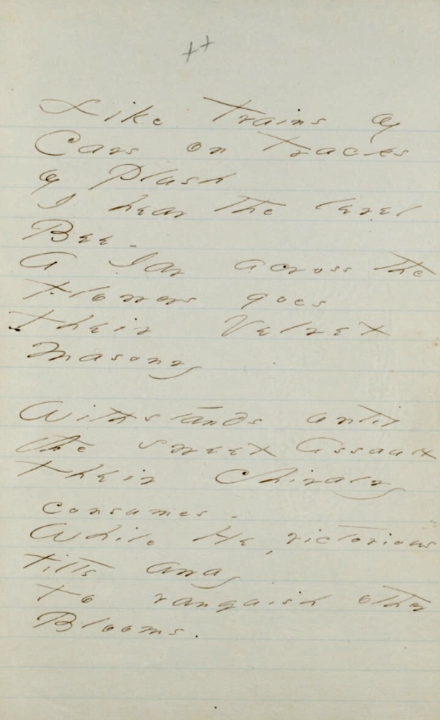 Like Trains of
Cars on Tracks
of Plush
I hear the level
Bee.
A Jar across the
Flowers goes
Their Velvet
Masonry
Withstands until
the sweet Assault
Their Chivalry
consumes.
While He, victorious
tilts away
To vanquish other
Blooms.